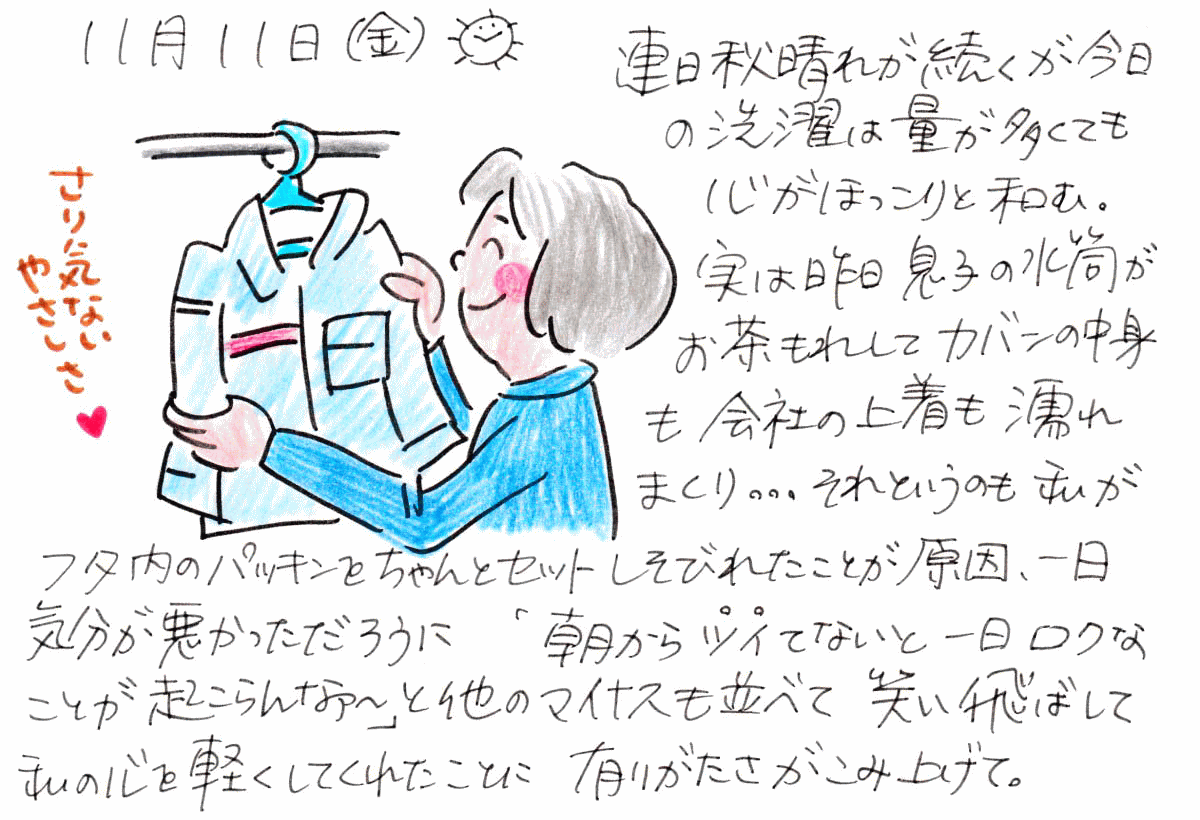 11月11日(金)
さり気ない
やさしさ
連日秋晴れが続くが今日
の洗濯は量が多くても
心がほっこりと和む。
実は昨日息子の水筒が
お茶もれしてカバンの中身
も会社の上着も濡れ
まくり... それというのも私が
フタ内のパッキンをちゃんとセットしそびれたことが原因、一日
気分が悪かっただろうに「朝からツイてないと一日ロクな
ことが起こらんなァ〜」と他のマイナスも並べて笑い飛ばして
私の心を軽くしてくれたことに 有りがたさがこみ上げて。